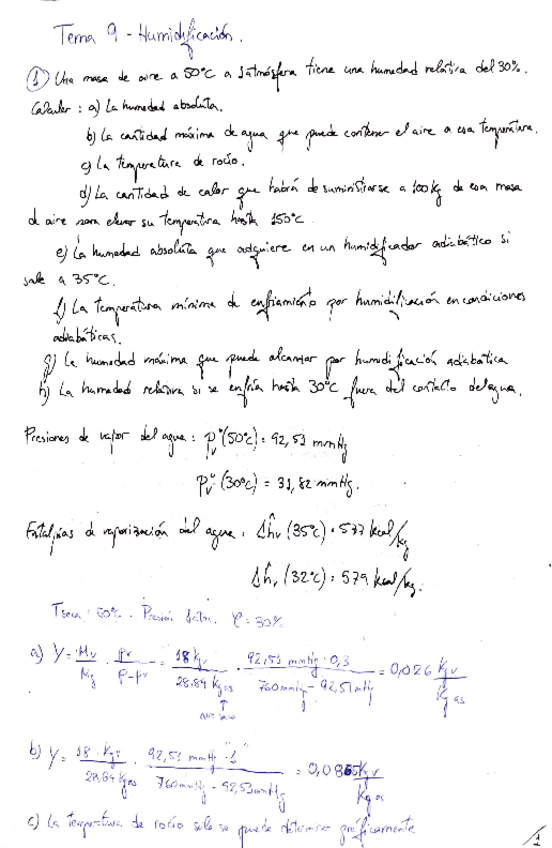 Tema 9 - Humidificación.
① Una masa de aire a 50ºC a 1 atmósfera tiene una humedad relativa del 30%.
Calcular: a) La humedad absoluta.
b) La cantidad máxima de agua que puede contener el aire a esa temperatura.
c) La temperatura de rocío.
d) La cantidad de calor que habrá de suministrarse a 100 kg de esa masa
de aire para elevar su temperatura hasta 150ºC
e) La humedad absoluta que adquiere en un humidificador adiabático si
sale a 35ºC.
f) La temperatura mínima de enfriamiento por humidificación en condiciones
adiabáticas.
g) La humedad máxima que puede alcanzar por humidificación adiabática
h) La humedad relativa si se enfría hasta 30ºC fuera del contacto del agua.
Presiones de vapor del agua: Pvº (50ºC) = 92,51 mmHg
Pvº (30ºC) = 31,82 mmHg.
Entalpías de vaporización del agua. Δĥv (35ºC) = 577 kcal/kg
Δĥv (32ºC) = 579 kcal/kg.
Tseca: 50ºC. Presión 1 atm. φ = 30%
a) Y = Mv/Mg · Pv/(P-Pv) = 18 kgv/28,84 kg as · (92,51 mmHg · 0,3)/(760 mmHg - 92,51 mmHg) = 0,026 kg v/kg as
↑
aire seco
b) Y = 18 kgv/28,84 kg as · (92,51 mmHg · "1")/(760 mmHg - 92,51 mmHg) = 0,0865 kg v/kg as
c) La temperatura de rocío solo se puede determinar gráficamente
1